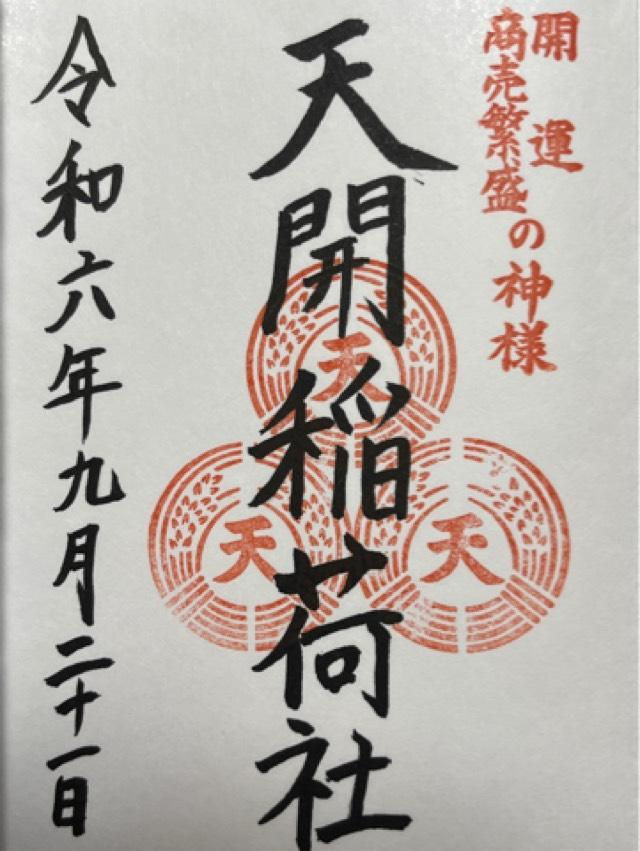 開運
商売繁盛
の神様
天開稲荷社
天
天
天
令和六年九月二十一日